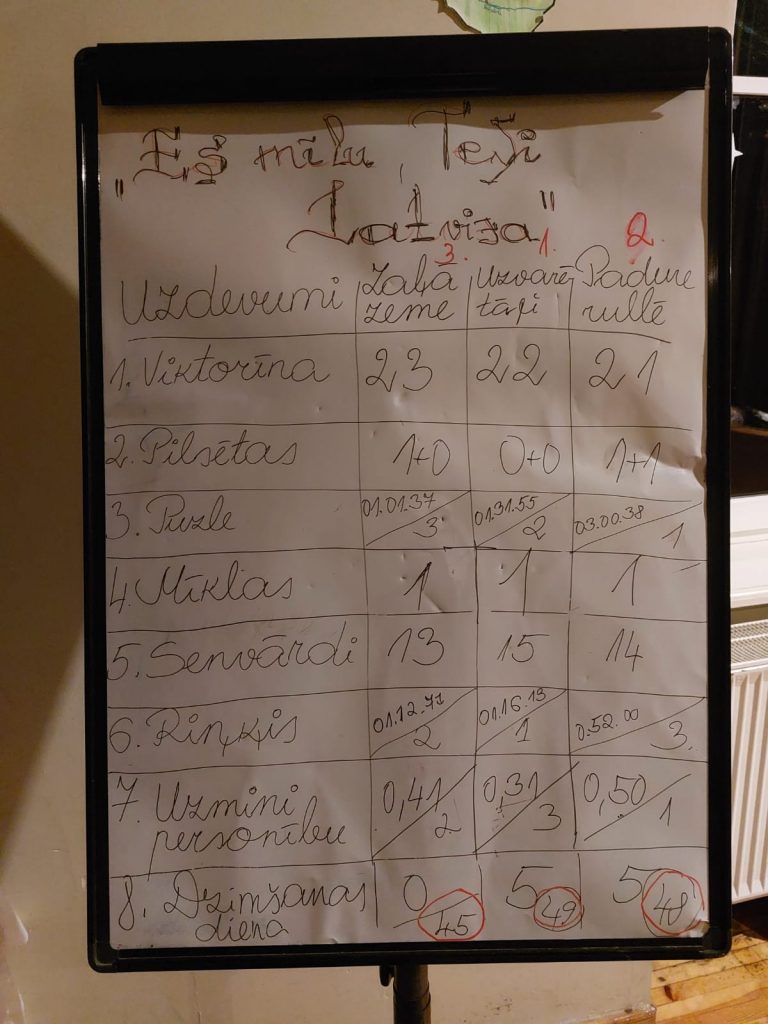 "Es mīlu Tevi,
Latvija"
3. 1. 2.
Uzdevumi Zaļā zeme Uzvarētāji Padure rullē
1. Viktorīna 23 22 21
2. Pilsētas 1+0 0+0 1+1
3. Puzle 01.01.37 3 01.31.55 2 03.00.38 1
4. Mīklas 1 1 1
5. Senvārdi 13 15 14
6. Riņķis 01.12.71 2 01.16.13 1 0.52.00 3
7. Uzmini personību 0,41 2 0,31 3 0,50 1
8. Dzimšanas diena 0 45 5 49 5 48